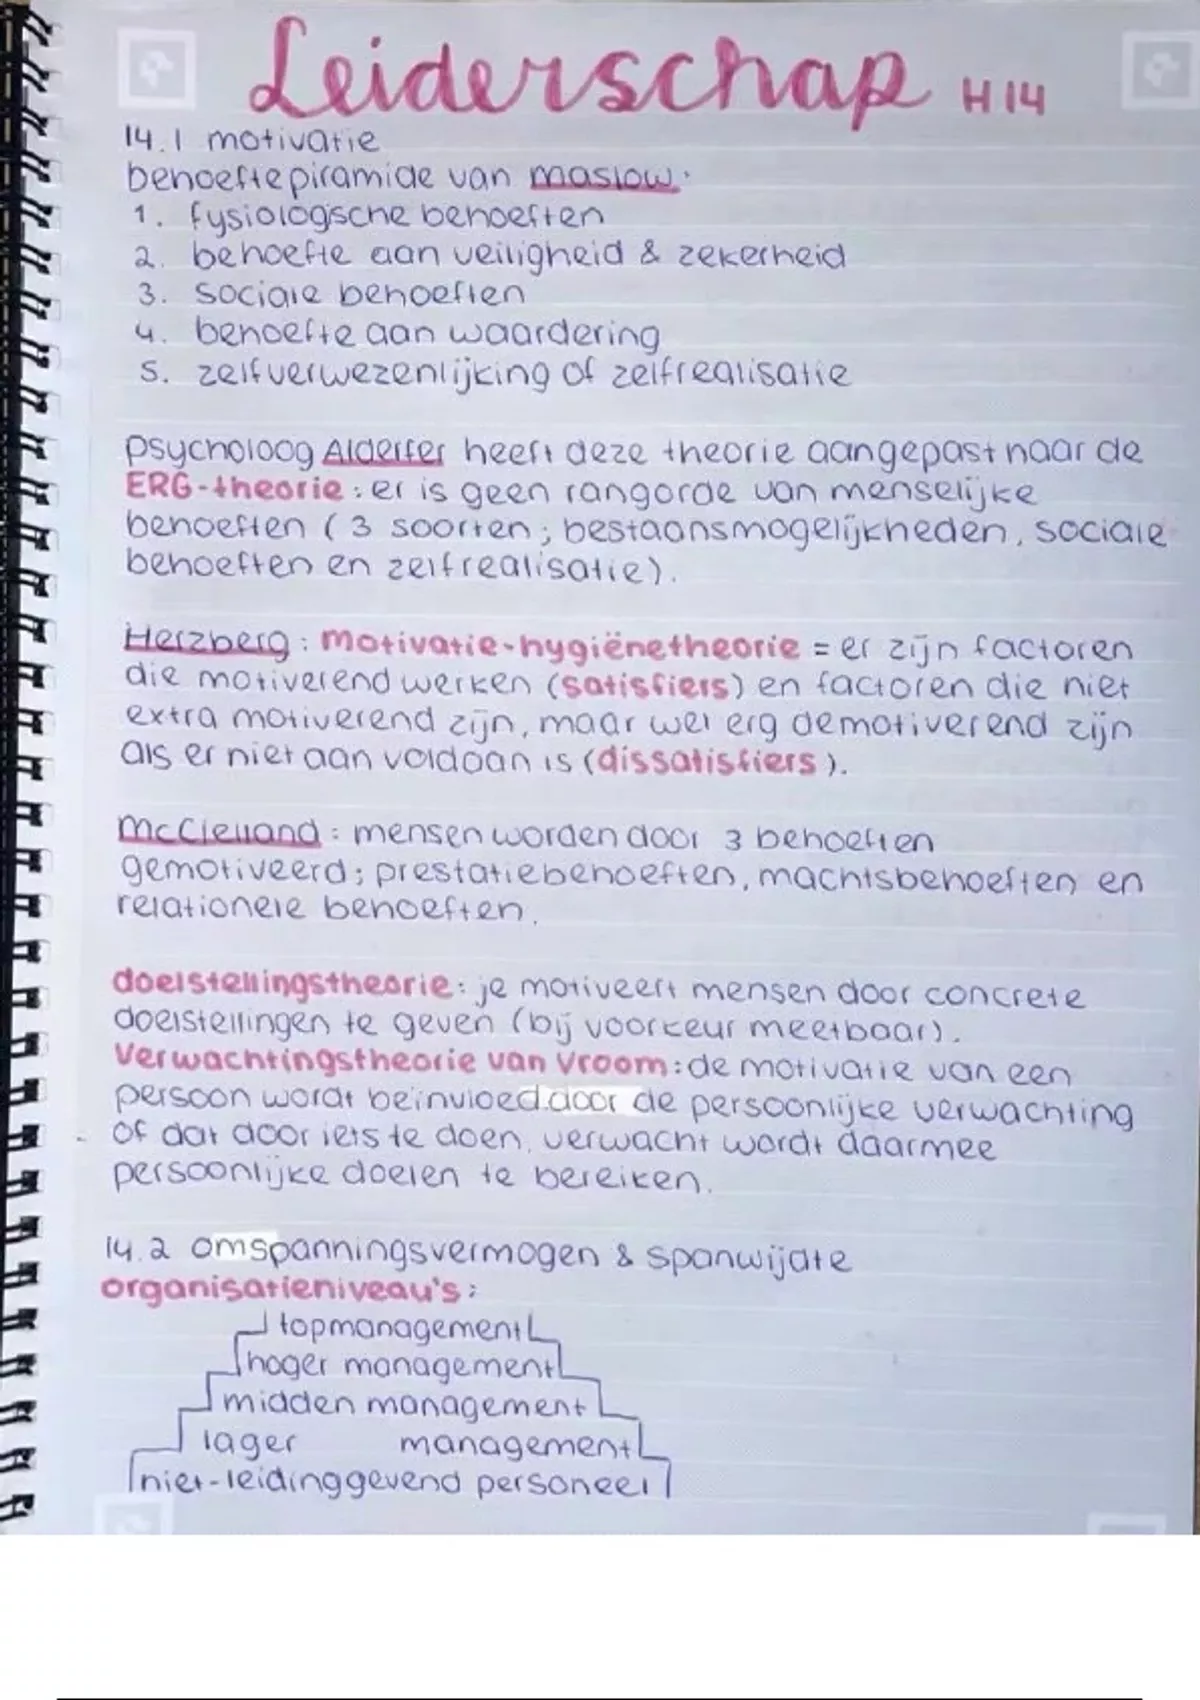 Leiderschap H14
14.1 motivatie
behoeftepiramide van maslow:
1. fysiologische behoeften
2. behoefte aan veiligheid & zekerheid
3. sociale behoeften
4. behoefte aan waardering
5. zelfverwezenlijking of zelfrealisatie
psycholoog Alderfer heeft deze theorie aangepast naar de
ERG-theorie: er is geen rangorde van menselijke
behoeften (3 soorten; bestaansmogelijkheden, sociale
behoeften en zelfrealisatie).
Herzberg: motivatie-hygiënetheorie = er zijn factoren
die motiverend werken (satisfiers) en factoren die niet
extra motiverend zijn, maar wel erg demotiverend zijn
als er niet aan voldaan is (dissatisfiers).
McClelland: mensen worden door 3 behoeften
gemotiveerd; prestatiebehoeften, machtsbehoeften en
relationele behoeften.
doelstellingstheorie: je motiveert mensen door concrete
doelstellingen te geven (bij voorkeur meetbaar).
Verwachtingstheorie van Vroom: de motivatie van een
persoon wordt beïnvloed door de persoonlijke verwachting
of dat door iets te doen, verwacht wordt daarmee
persoonlijke doelen te bereiken.
14.2 omspanningsvermogen & spanwijdte
organisatieniveau's:
topmanagement
hoger management
midden management
lager management
niet-leidinggevend personeel